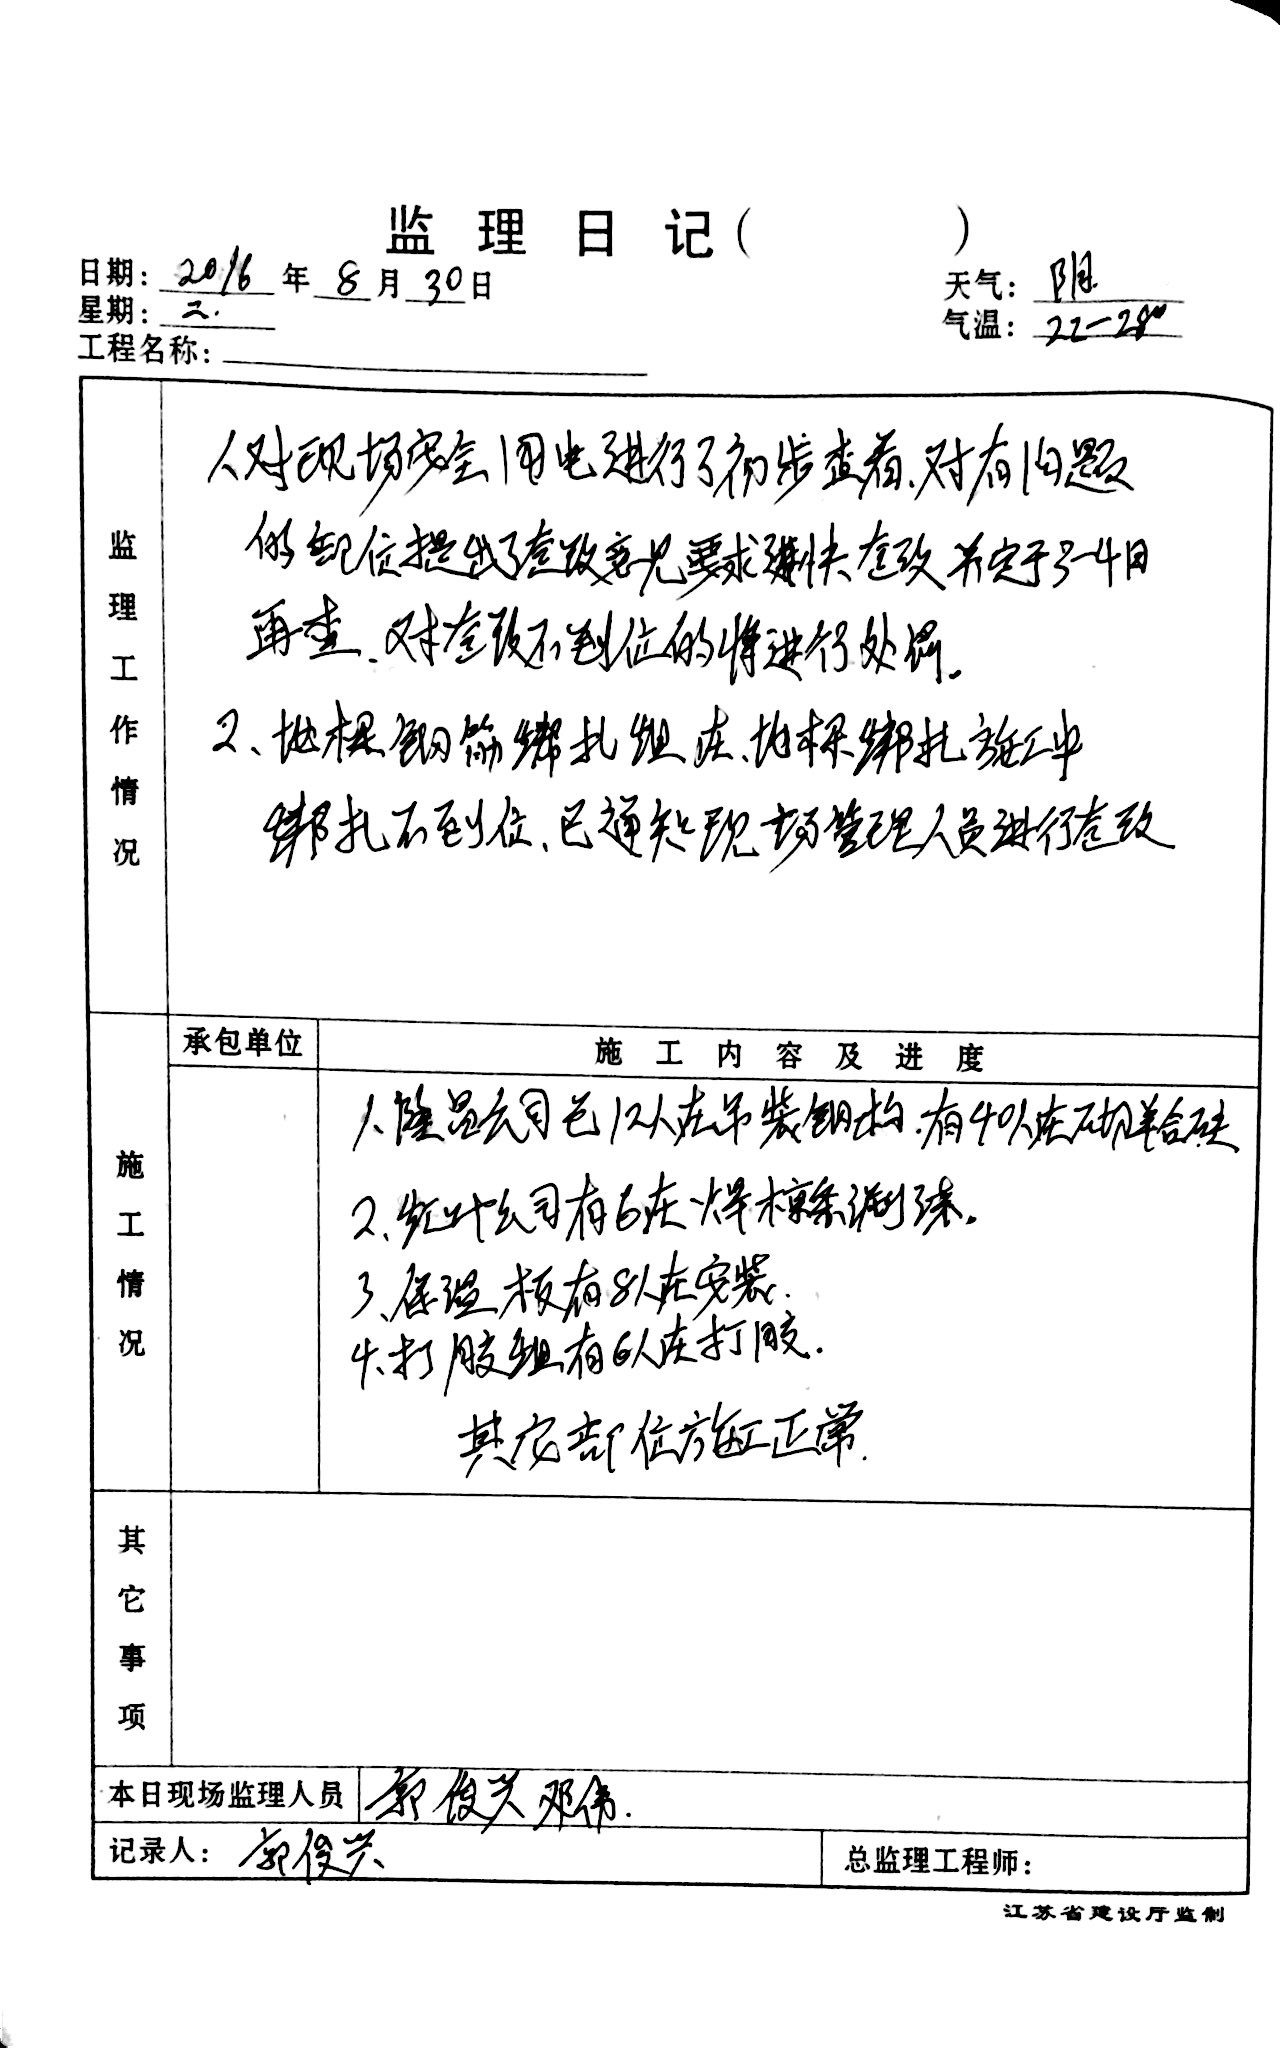 监理日记(　　)
日期：2016年8月30日　天气：阴
星期：二.　气温：22-28°
工程名称：
监理工作情况
1、对现场安全用电进行了初步查看、对有问题
的部位提出了查改意见要求进快查改并定于3-4日
再查、对查改不到位的将进行处罚。
2、地梁钢筋绑扎组在、地梁绑扎施工中
绑扎不到位、已通知现场管理人员进行查改
施工情况
承包单位　施工内容及进度
1、公司 12人在吊装钢构.有40人在砌
2、红叶公司有6在焊檩条刷漆。
3、保温板有8人在安装.
4、打胶组有6人在打胶.
其它部位施工正常.
其它事项
本日现场监理人员　郭俊兴 邓伟.
记录人：郭俊兴　总监理工程师：
江苏省建设厅监制